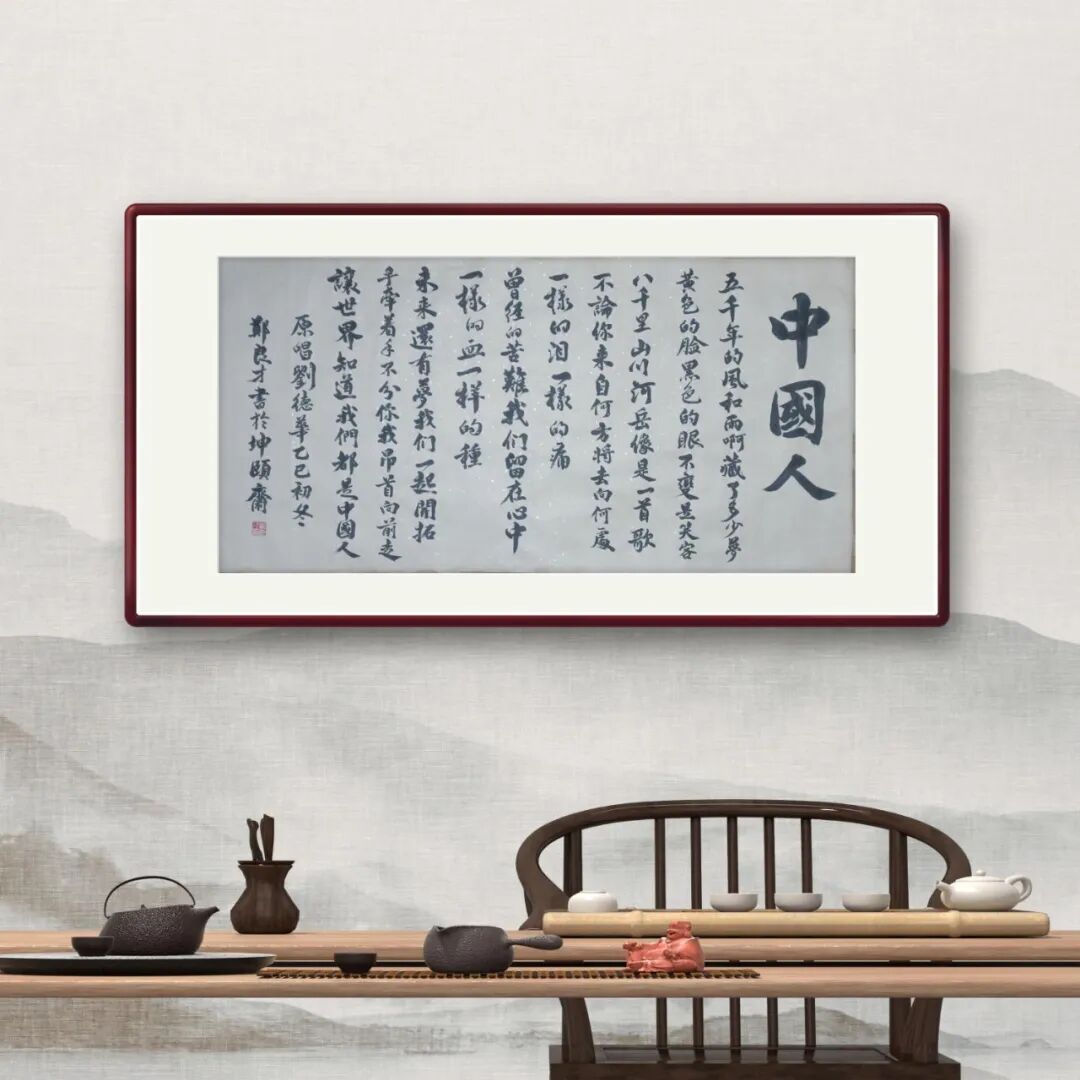 中國人
五千年的风和雨啊藏了多少夢
黄色的脸黑色的眼不变是笑容
八千里山川河岳像是一首歌
不論你来自何方将去向何處
一樣的泪一樣的痛
曾经的苦難我们留在心中
一樣的血一样的種
未来還有夢我们一起開拓
手牵着手不分你我昂首向前走
讓世界知道我們都是中国人
原唱劉德華乙巳初冬
鄭良才書於坤頤齋